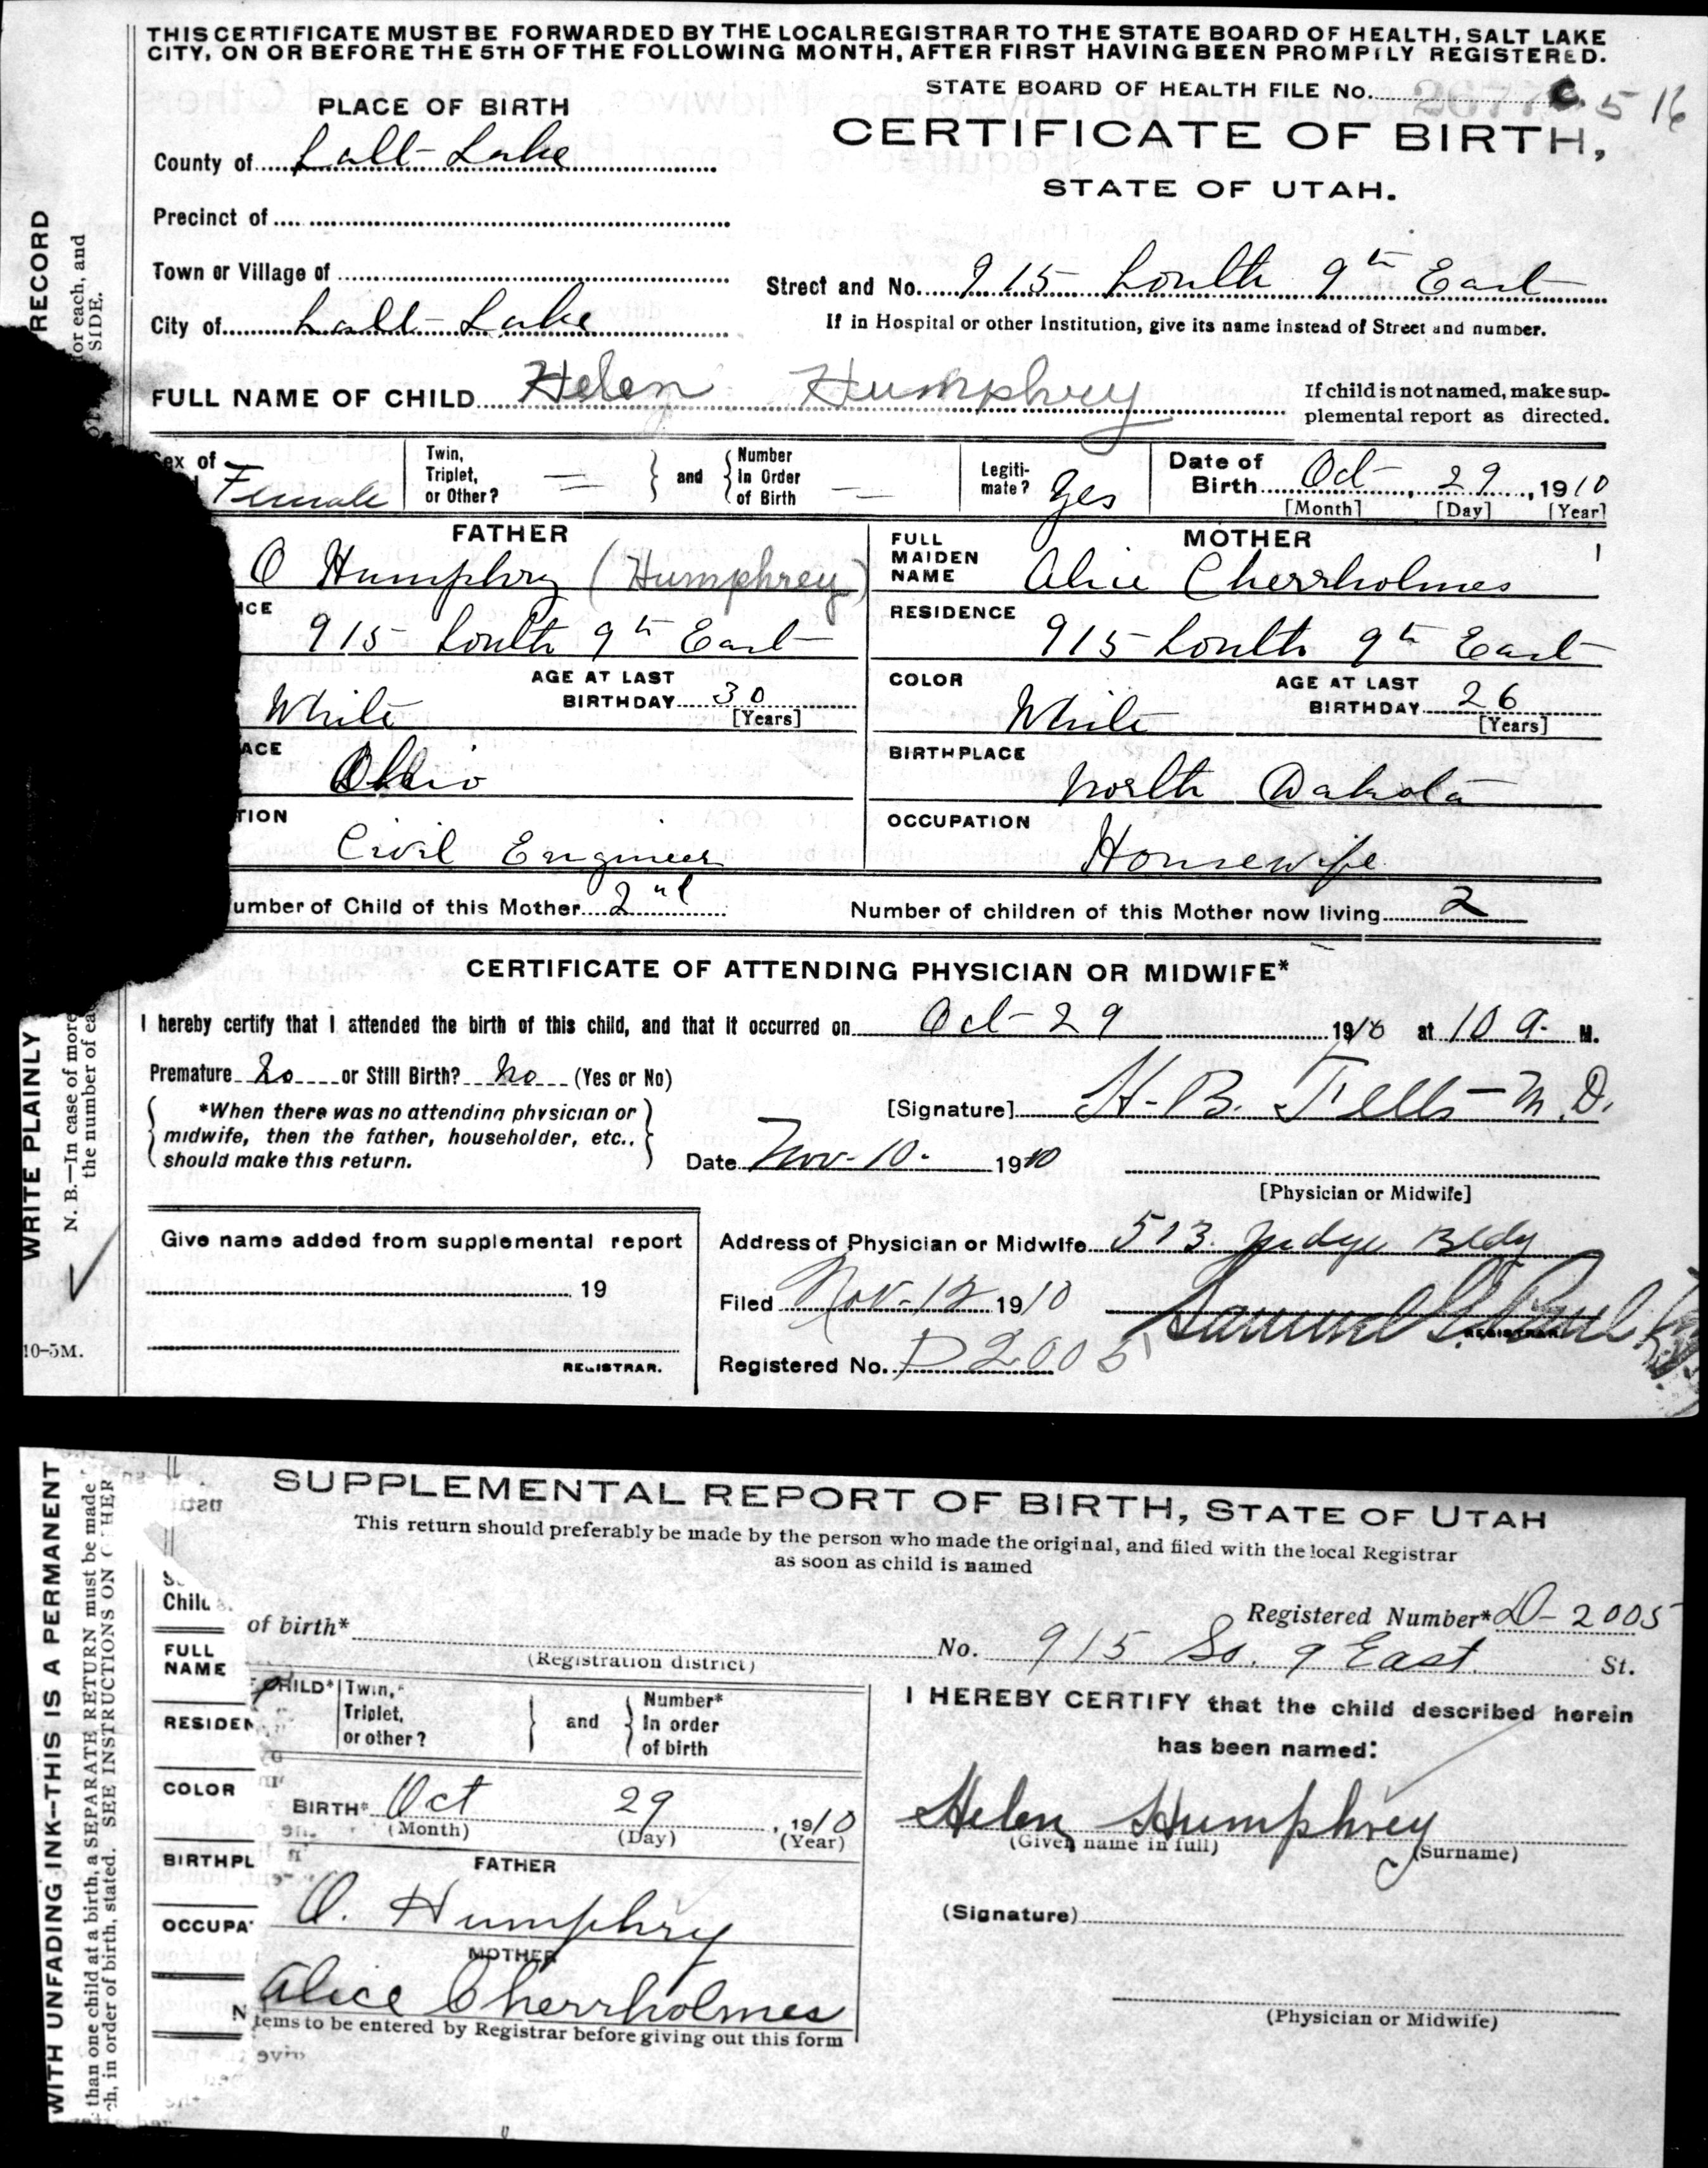 THIS CERTIFICATE MUST BE FORWARDED BY THE LOCAL REGISTRAR TO THE STATE BOARD OF HEALTH, SALT LAKE
CITY, ON OR BEFORE THE 5TH OF THE FOLLOWING MONTH, AFTER FIRST HAVING BEEN PROMPTLY REGISTERED.
STATE BOARD OF HEALTH FILE No. C. 516
PLACE OF BIRTH
CERTIFICATE OF BIRTH,
County of Salt Lake
STATE OF UTAH.
Precinct of
Town or Village of
Street and No. 915 South 9th East
City of Salt Lake
If in Hospital or other Institution, give its name instead of Street and number.
FULL NAME OF CHILD Helen Humphrey
If child is not named, make sup-
plemental report as directed.
ex of Female
Twin, Triplet, or Other? — and Number in Order of Birth —
Legiti-mate? yes
Date of Birth Oct 29, 1910
[Month] [Day] [Year]
FATHER
O Humphry (Humphrey)
ICE
915 South 9th East
White
AGE AT LAST BIRTHDAY 30
[Years]
ACE
Ohio
TION
Civil Engineer
MOTHER
FULL MAIDEN NAME Alice Cherrholmes
RESIDENCE
915 South 9th East
COLOR
White
AGE AT LAST BIRTHDAY 26
[Years]
BIRTHPLACE
North Dakota
OCCUPATION
Housewife
umber of Child of this Mother 2nd
Number of children of this Mother now living 2
CERTIFICATE OF ATTENDING PHYSICIAN OR MIDWIFE*
I hereby certify that I attended the birth of this child, and that it occurred on Oct-29 1910 at 10 a. M.
Premature No or Still Birth? No (Yes or No)
*When there was no attending physician or
midwife, then the father, householder, etc.,
should make this return.
[Signature] H. B. Fells M.D.
Date Nov-10- 1910
[Physician or Midwife]
Give name added from supplemental report
19
REGISTRAR.
Address of Physician or Midwife 513 Judge Bldg
Filed Nov-12 1910
Samuel G. Paul
REGISTRAR
Registered No. D2005
RECORD
for each, and
SIDE.
WRITE PLAINLY
N. B.—In case of more
the number of ea
10-5M.
SUPPLEMENTAL REPORT OF BIRTH, STATE OF UTAH
This return should preferably be made by the person who made the original, and filed with the local Registrar
as soon as child is named
Registered Number* D-2005
of birth*
(Registration district)
No. 915 So. 9 East St.
CHILD* Twin, Triplet, or other? and Number* in order of birth
BIRTH* Oct 29, 1910
(Month) (Day) (Year)
FATHER
O. Humphry
MOTHER
Alice Cherrholmes
tems to be entered by Registrar before giving out this form
I HEREBY CERTIFY that the child described herein
has been named:
Helen Humphrey
(Given name in full) (Surname)
(Signature)
(Physician or Midwife)
Child
FULL NAME
RESIDEN
COLOR
BIRTHPL
OCCUPA
N
WITH UNFADING INK--THIS IS A PERMANENT
than one child at a birth, a SEPARATE RETURN must be made
ch, in order of birth, stated. SEE INSTRUCTIONS ON OTHER